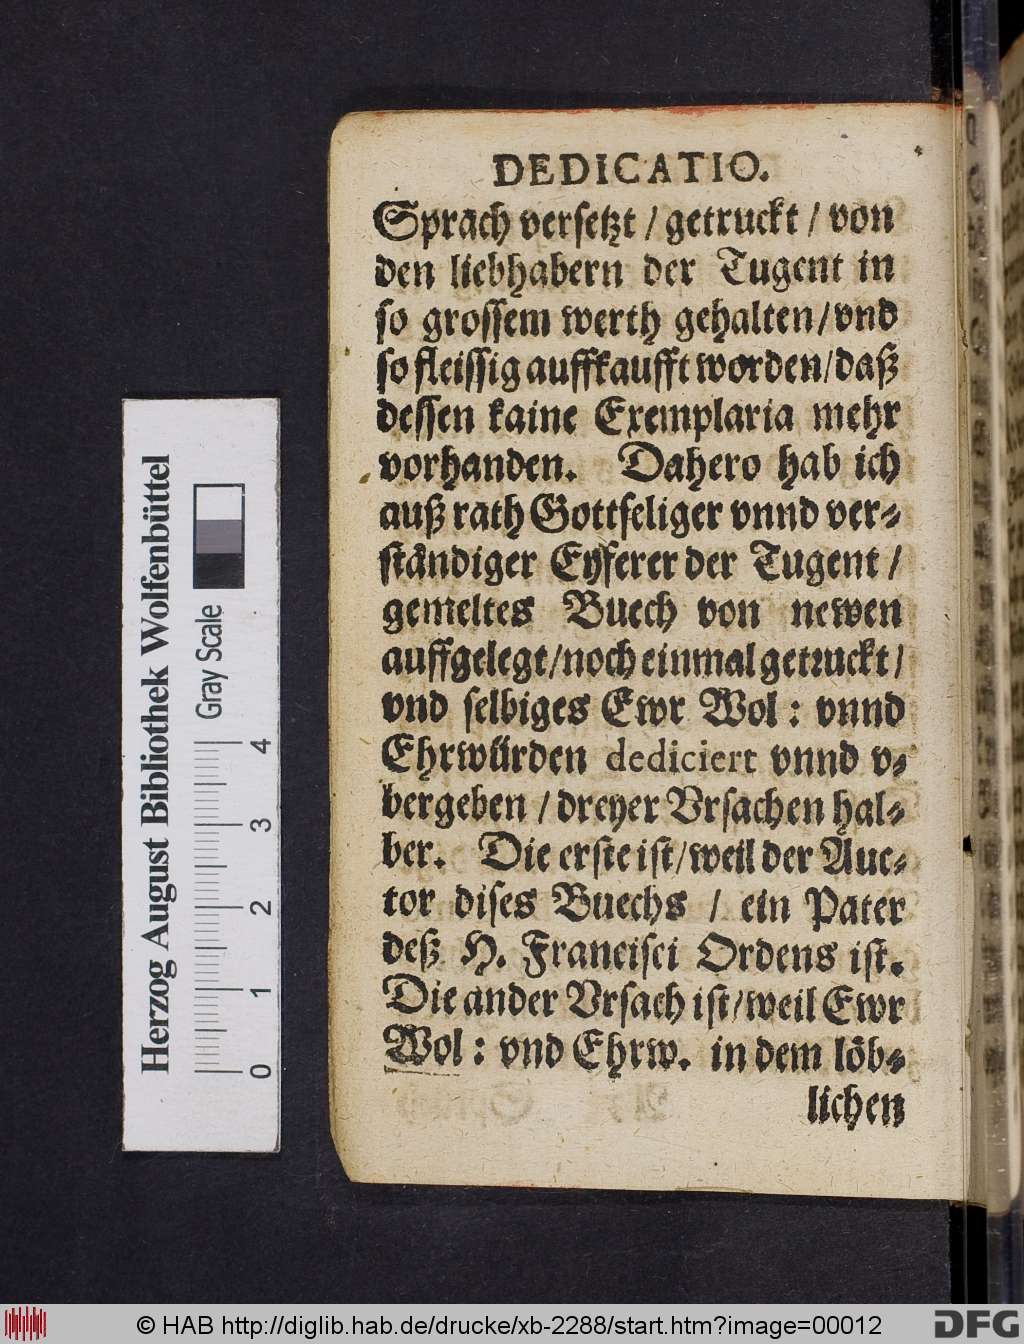 DEDICATIO.
Sprach versetzt / getruckt / von
den liebhabern der Tugent in
so grossem werth gehalten / vnd
so fleissig auffkaufft worden / daß
dessen kaine Exemplaria mehr
vorhanden. Dahero hab ich
auß rath Gottseliger vnnd ver-
ständiger Eyferer der Tugent /
gemeltes Buech von newen
auffgelegt / noch einmal getruckt /
vnd selbiges Ewr Wol : vnnd
Ehrwürden dediciert vnnd v-
bergeben / dreyer Vrsachen hal-
ber. Die erste ist / weil der Auc-
tor dises Buechs / ein Pater
deß H. Francisci Ordens ist.
Die ander Vrsach ist / weil Ewr
Wol : vnd Ehrw. in dem löb-
lichen
Herzog August Bibliothek Wolfenbüttel
Gray Scale
0 1 2 3 4
© HAB http://diglib.hab.de/drucke/xb-2288/start.htm?image=00012
DFG